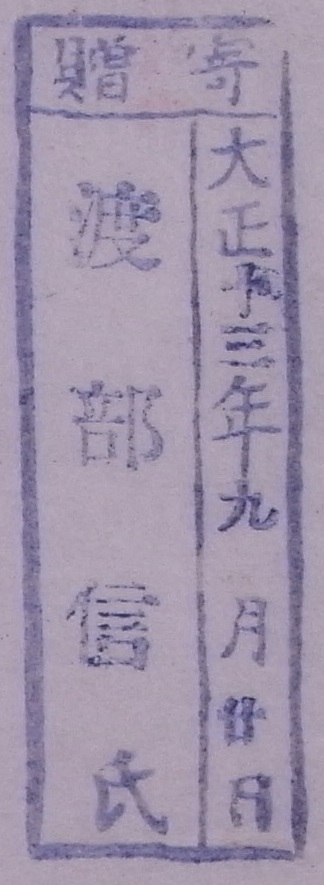 寄贈
大正十三年九月廿日
渡部信氏